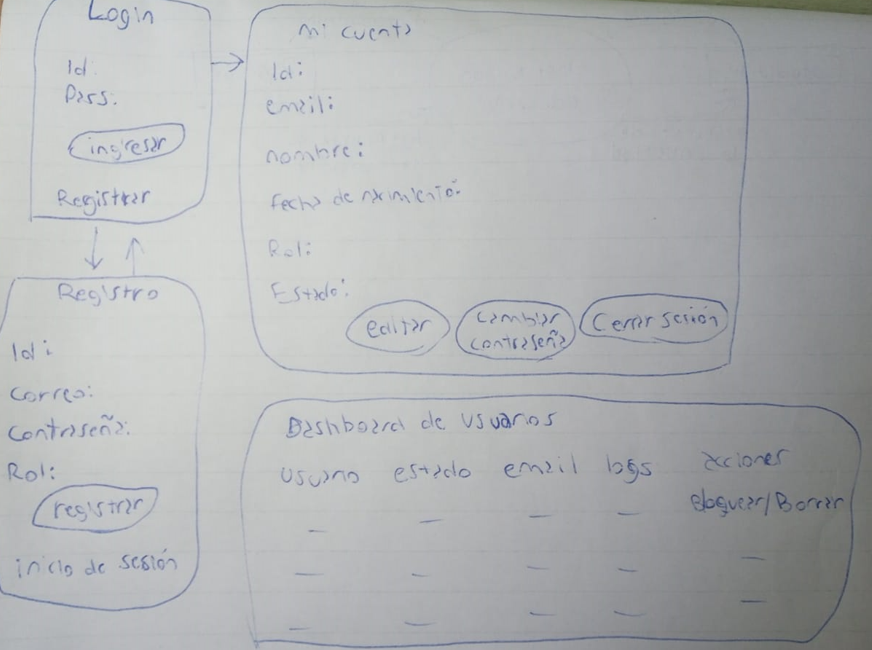 Login
Id
Pass:
ingresar
Registrar
mi cuenta
Id:
email:
nombre:
Fecha de nacimiento:
Rol:
Estado:
editar
cambiar
contraseña
Cerrar sesión
Registro
Id:
Correo:
Contraseña:
Rol:
registrar
inicio de sesión
Dashboard de usuarios
usuario estado email logs acciones
Bloquear/Borrar